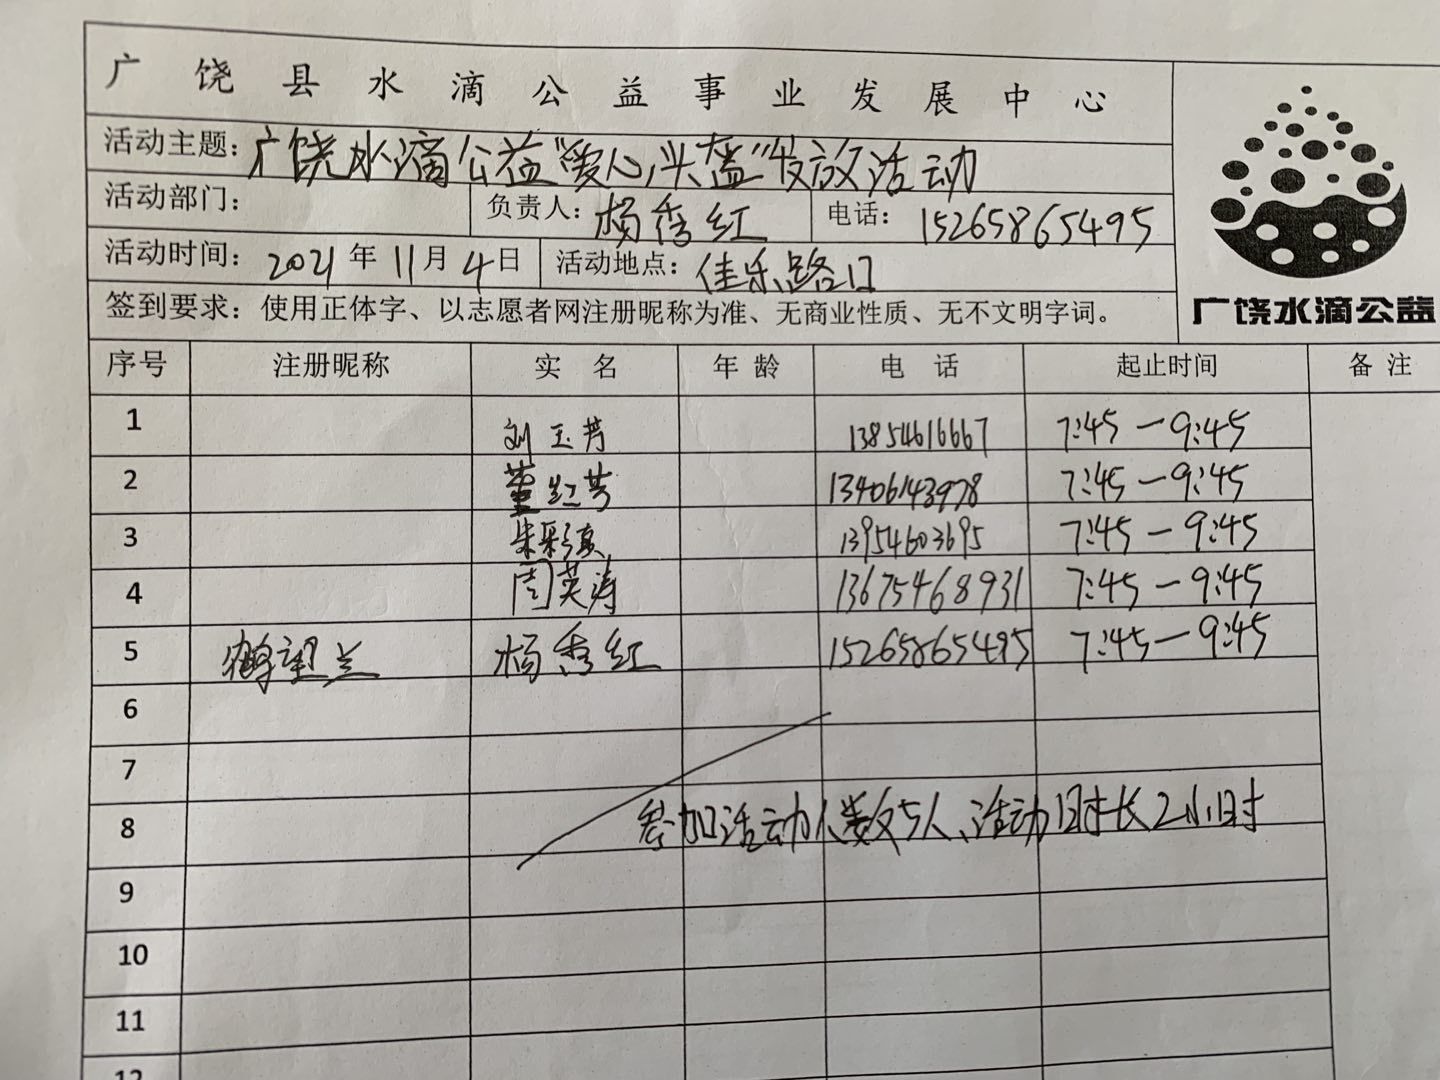 广饶县水滴公益事业发展中心
活动主题：广饶水滴公益“爱心头盔”发放活动
活动部门： 负责人：杨秀红 电话：15265865495
活动时间：2021年11月4日 活动地点：佳乐路口
签到要求：使用正体字、以志愿者网注册昵称为准、无商业性质、无不文明字词。
广饶水滴公益
序号 注册昵称 实名 年龄 电话 起止时间 备注
1 刘玉芳 13854616667 7:45—9:45
2 董红芳 13406143978 7:45—9:45
3 朱彩 13954603695 7:45—9:45
4 周英涛 13675468931 7:45—9:45
5 鹤望兰 杨秀红 15265865495 7:45—9:45
6
7
8 参加活动人数5人、活动时长2小时
9
10
11
12